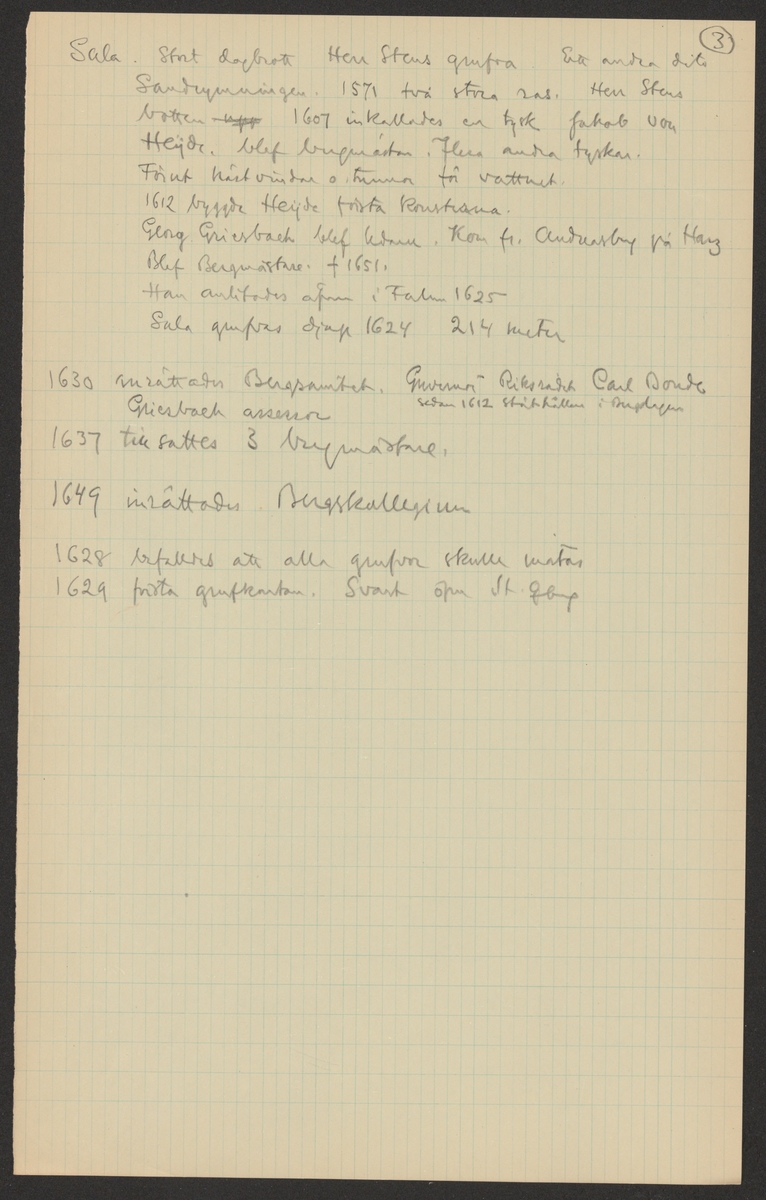 3
Sala. Stort dagbrott Herr Stens grufva. Ett andra dito
Sandrymningen. 1571 två stora ras. Herr Stens
botten upp 1607 inkallades en tysk Jakob von
Heijde. blef bergmästare. Flera andra tyskar.
Förut hästvindar o. tunnor för vattnet.
1612 byggde Heijde första konsterna.
Georg Griesbach blef ledare. Kom fr. Andreasberg på Harz
Blef Bergmästare. † 1651.
Han anlitades äfven i Falun 1625
Sala grufvas djup 1624 214 meter
1630 inrättades Bergsamtet. Guvernör Riksrådet Carl Bonde
sedan 1612 Ståthållare i Bergslagen
Griesbach assessor
1637 tillsattes 3 bergmästare.
1649 inrättades Bergskollegium
1628 befalldes att alla grufvor skulle mätas
1629 första grufkartan. Svart öfver St.